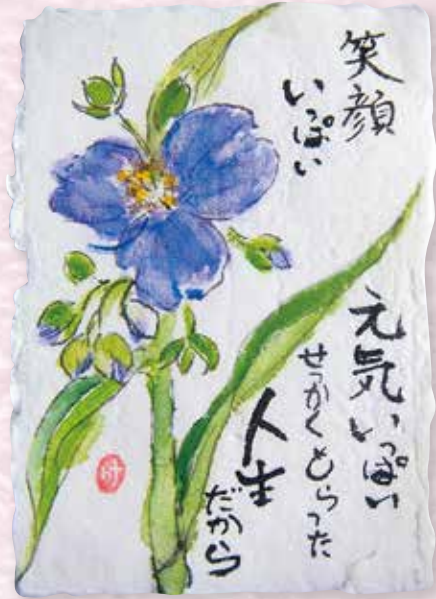 笑顔
いっぱい
元気いっぱい
せっかくもらった
人生
だから